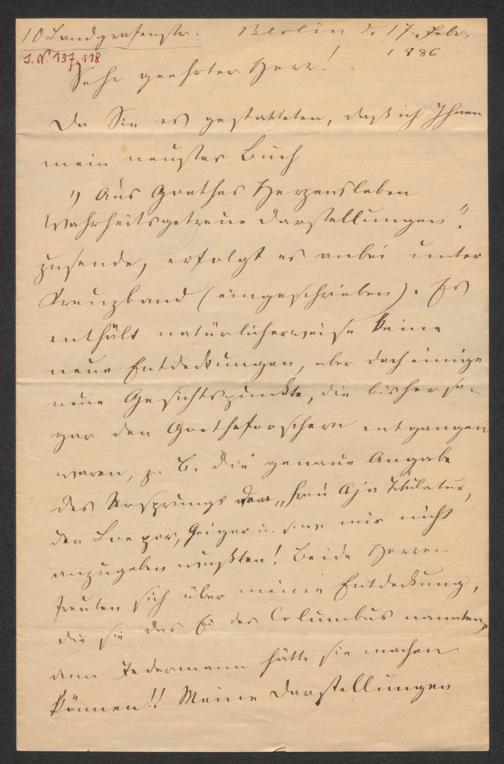 10 Landgrafenstr. Berlin d. 17. Febr.
1886
J.N. 137.118
Sehr geehrter Herr!
Da Sie es gestatteten, daß ich Ihnen
mein neustes Buch
"Aus Goethes Herzensleben
Wahrheitsgetreue Darstellungen".
zusende, erfolgt es anbei unter
Kreuzband (eingeschrieben). Es
enthält natürlicherweise keine
neue Entdeckungen, aber doch einige
neue Gesichtspunkte, die bisher so-
gar den Goetheforschern entgangen
waren, z. B. die genaue Angabe
des Ursprungs der „Frau Aja Titulatur,
den Loeper, Geiger u. mir nicht
anzugeben wußten! Beide Herren
freuten sich über meine Entdeckung,
die sie das Ei des Columbus nannten,
denn Jedermann hätte sie machen
können!! Meine Darstellungen